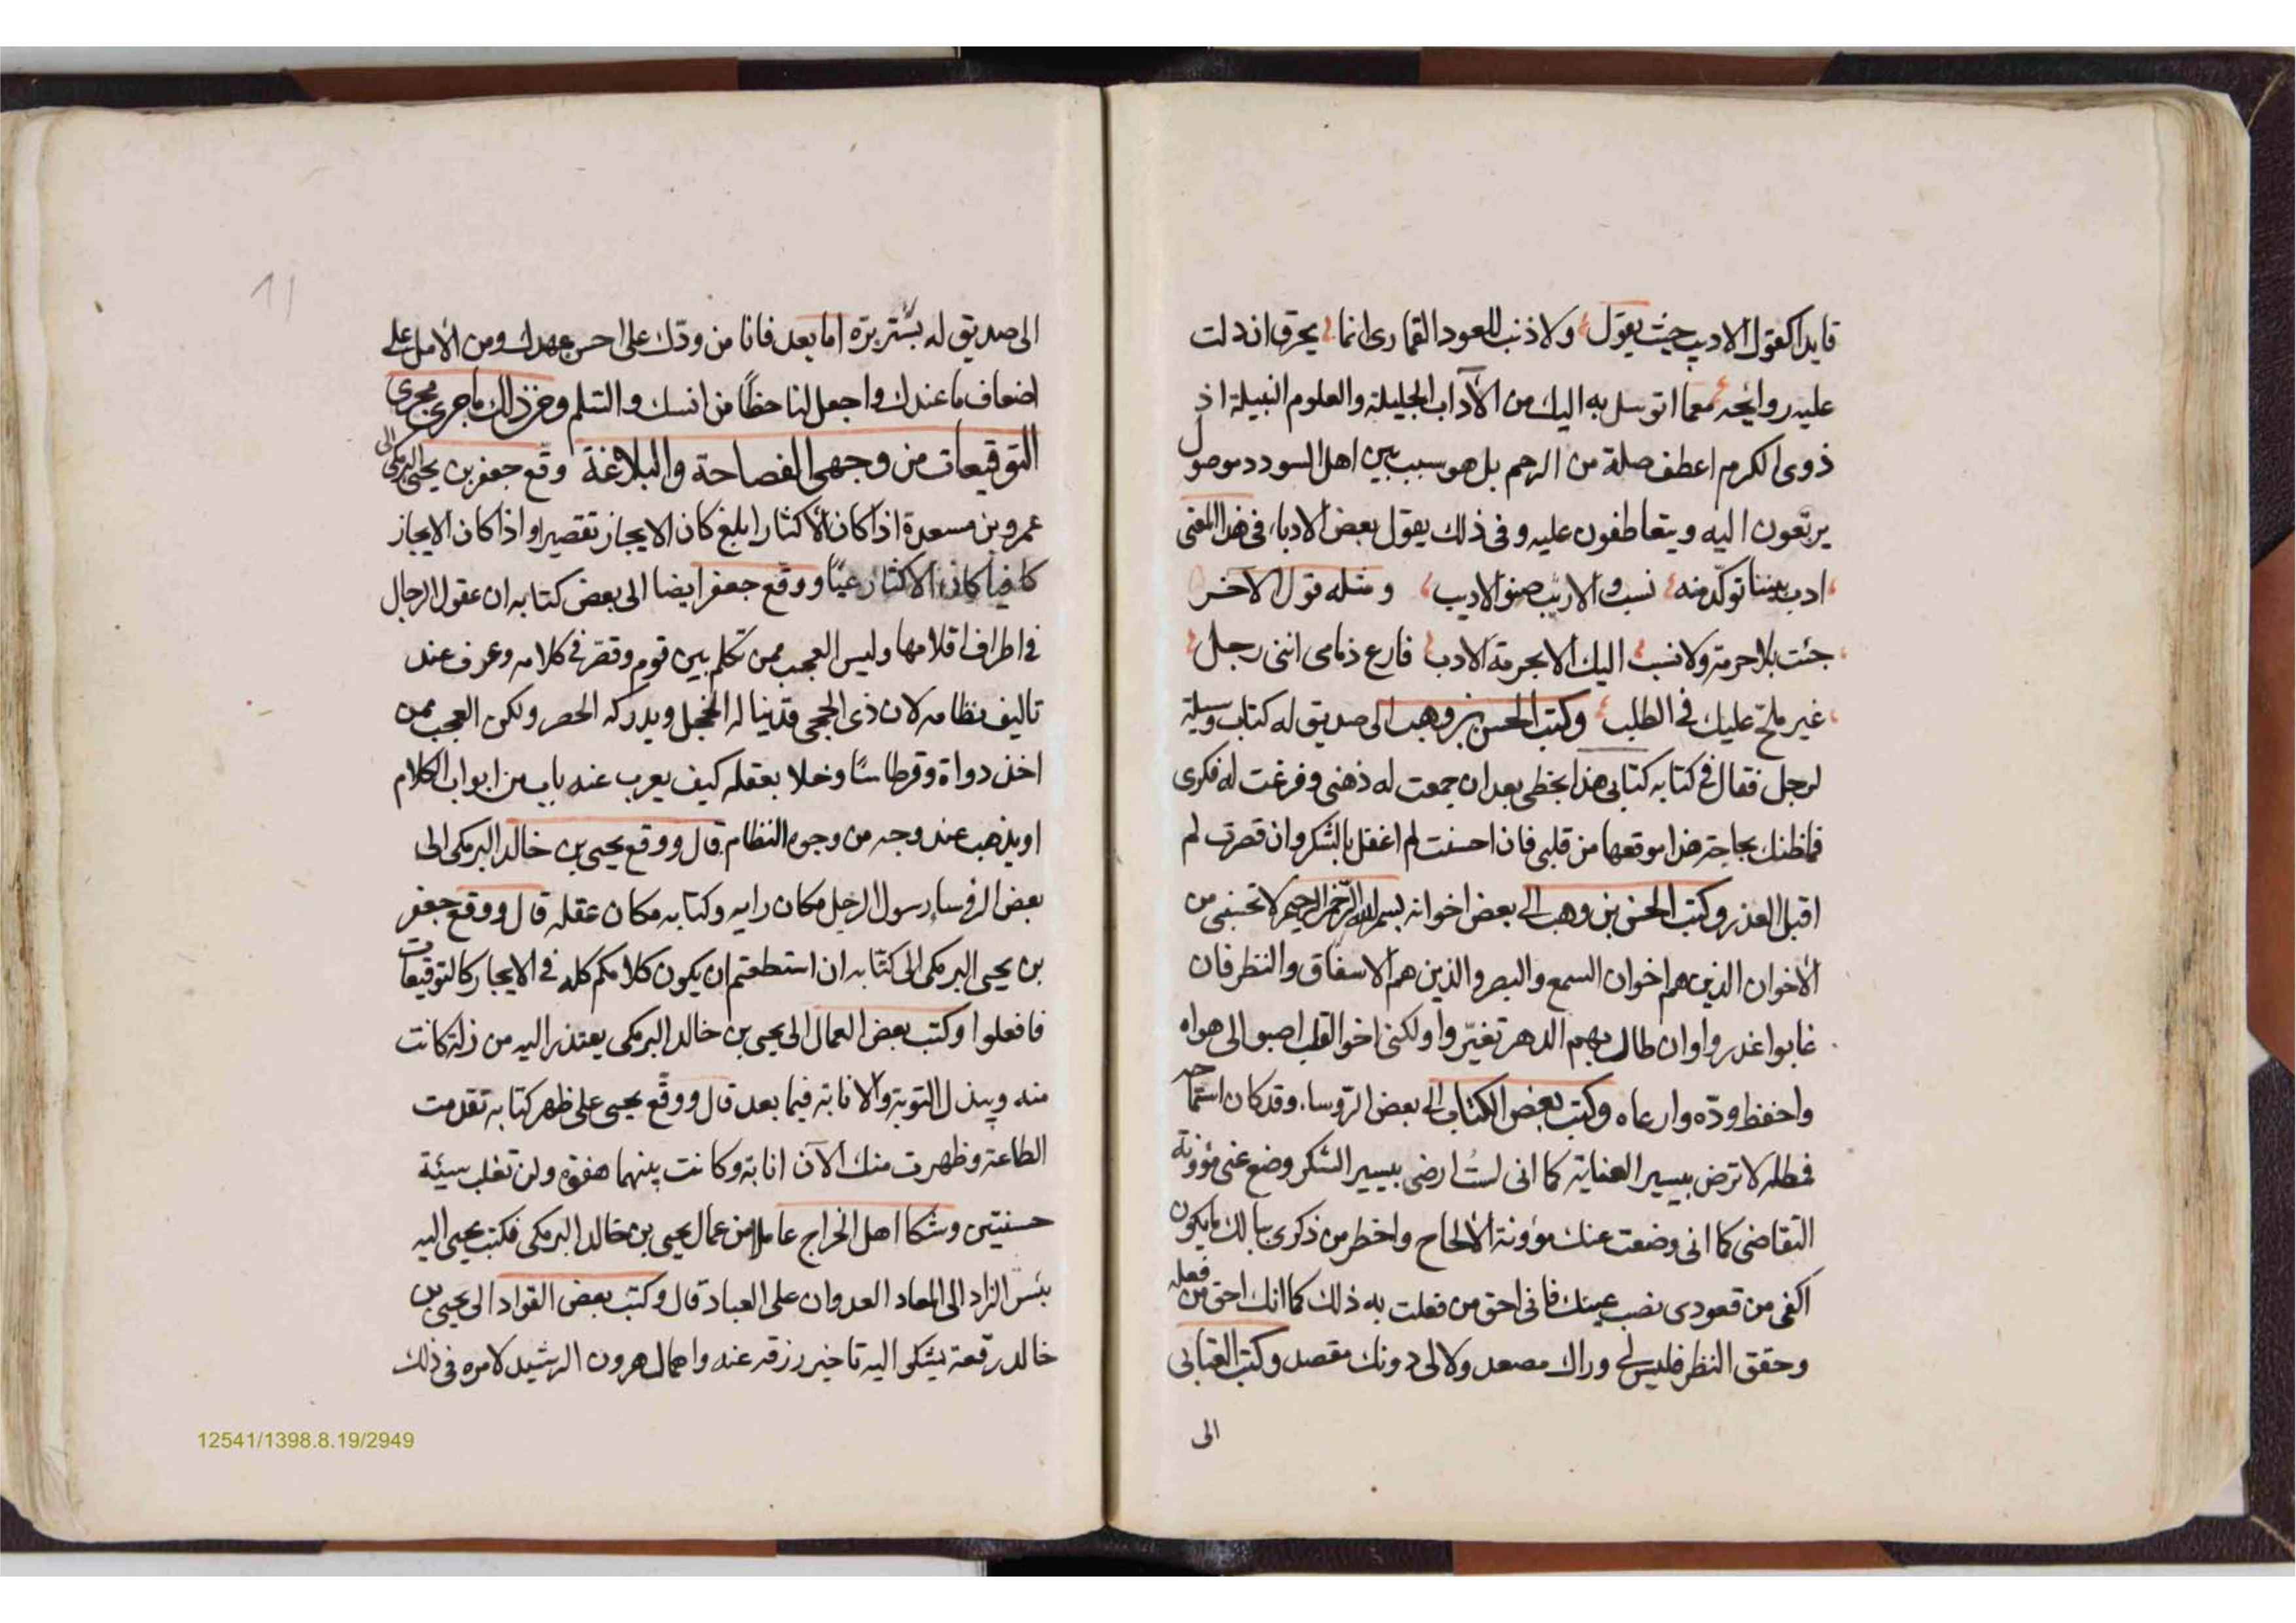 قايدا كقول الاديب حيث يقول ولا ذنب للعود القمارى انما يحرق ان دلت
عليه روايحه معما اتوسل به اليك من الآداب الجليلة والعلوم النبيلة اذ
ذوى الكرم اعطف صلة من الرحم بل هو سبب بين اهل السودد موصول
يرتعون اليه ويتعاطفون عليه وفى ذلك يقول بعض الادباء فى هذا المعنى
ادب بيننا تولّد منه نسب والاديب صنو الاديب ومثله قول الآخر
جئت بلا حرمة ولا نسب اليك الا بحرمة الادب فارع ذمامى اننى رجل
غير ملحّ عليك فى الطلب وكتب الحسن بن وهب الى صديق له كتاب وسيلة
لرجل فقال فى كتابه كتابى هذا بخطى بعد ان جمعت له ذهنى وفرغت له فكرى
فما ظنك بحاجة هذا موقعها من قلبى فان احسنت لم اغفل بالشكر وان قصرت لم
اقبل العذر وكتب الحسن بن وهب الى بعض اخوانه بسم الله الرحمن الرحيم لا تحسبنى من
الأخوان الذين هم اخوان السمع والبصر والذين هم الاسفاق والنظر فان
غابوا غدروا وان طال بهم الدهر تغيّروا ولكنى اخو القلب اصبو الى هواه
واحفظ ودّه وارعاه وكتب بعض الكتاب الى بعض الرؤساء وقد كان استماحه
فمطله لا ترض بيسير العناية كما انى لستُ ارضى بيسير الشكر وضع عنى مؤونة
التقاضى كما انى وضعت عنك مؤونة الألحاح واخطر من ذكرى ببالك ما يكون
اكفى من قعودى نصب عينك فانى احق من فعلت به ذلك كما انك احق من فعله
وحقق النظر فليس لى وراك مصعد ولا لى دونك مقصد وكتب العتابى
الى
11
الى صديق له يستبره اما بعد فانا من ودّك على احسن عهدك ومن الأمل على
اضعاف ما عندك واجعل لنا حظًا من انسك والسّلم ومن ذلك ما جرى مجرى
التوقيعات من وجهى الفصاحة والبلاغة وقّع جعفر بن يحيى البرمكى الى
عمرو بن مسعدة اذا كان الأكثار ابلغ كان الايجاز تقصيرا واذا كان الايجاز
كافيا كان الاكثار عيّا ووقّع جعفر ايضا الى بعض كتابه ان عقول الرجال
فى اطراف اقلامها وليس العجب ممن تكلم بين قوم وقصّر فى كلامه وعرف عند
تاليف نظامه لان ذى الحجى قد ينا له الخجل ويدركه الحصر ولكن العجب ممن
اخذ دواة وقرطاسًا وخلا بعقله كيف يعرب عنه باب من ابواب الكلام
او يذهب عنه وجه من وجوه النظام قال ووقع يحيى بن خالد البرمكى الى
بعض الرؤساء رسول الرجل مكان رايه وكتابه مكان عقله قال ووقع جعفر
بن يحيى البرمكى الى كتّابه ان استطعتم ان يكون كلامكم كله فى الايجاز كالتوقيعات
فافعلوا وكتب بعض العمال الى يحيى بن خالد البرمكى يعتذر اليه من زلة كانت
منه ويبذل التوبة والانابة فيما بعد قال ووقّع يحيى على ظهر كتابه تقدمت
الطاعة وظهرت منك الآن انابة وكانت بينهما هفوة ولن تغلب سيئة
حسنتين وشكا اهل الخراج عاملا من عمال يحيى بن خالد البرمكى فكتب يحيى اليه
بئس الزاد الى المعاد العدوان على العباد قال وكتب بعض القواد الى يحيى بن
خالد رقعة يشكو اليه تاخير رزقه عنه واهمال هرون الرشيد لامره فى ذلك
12541/1398.8.19/2949